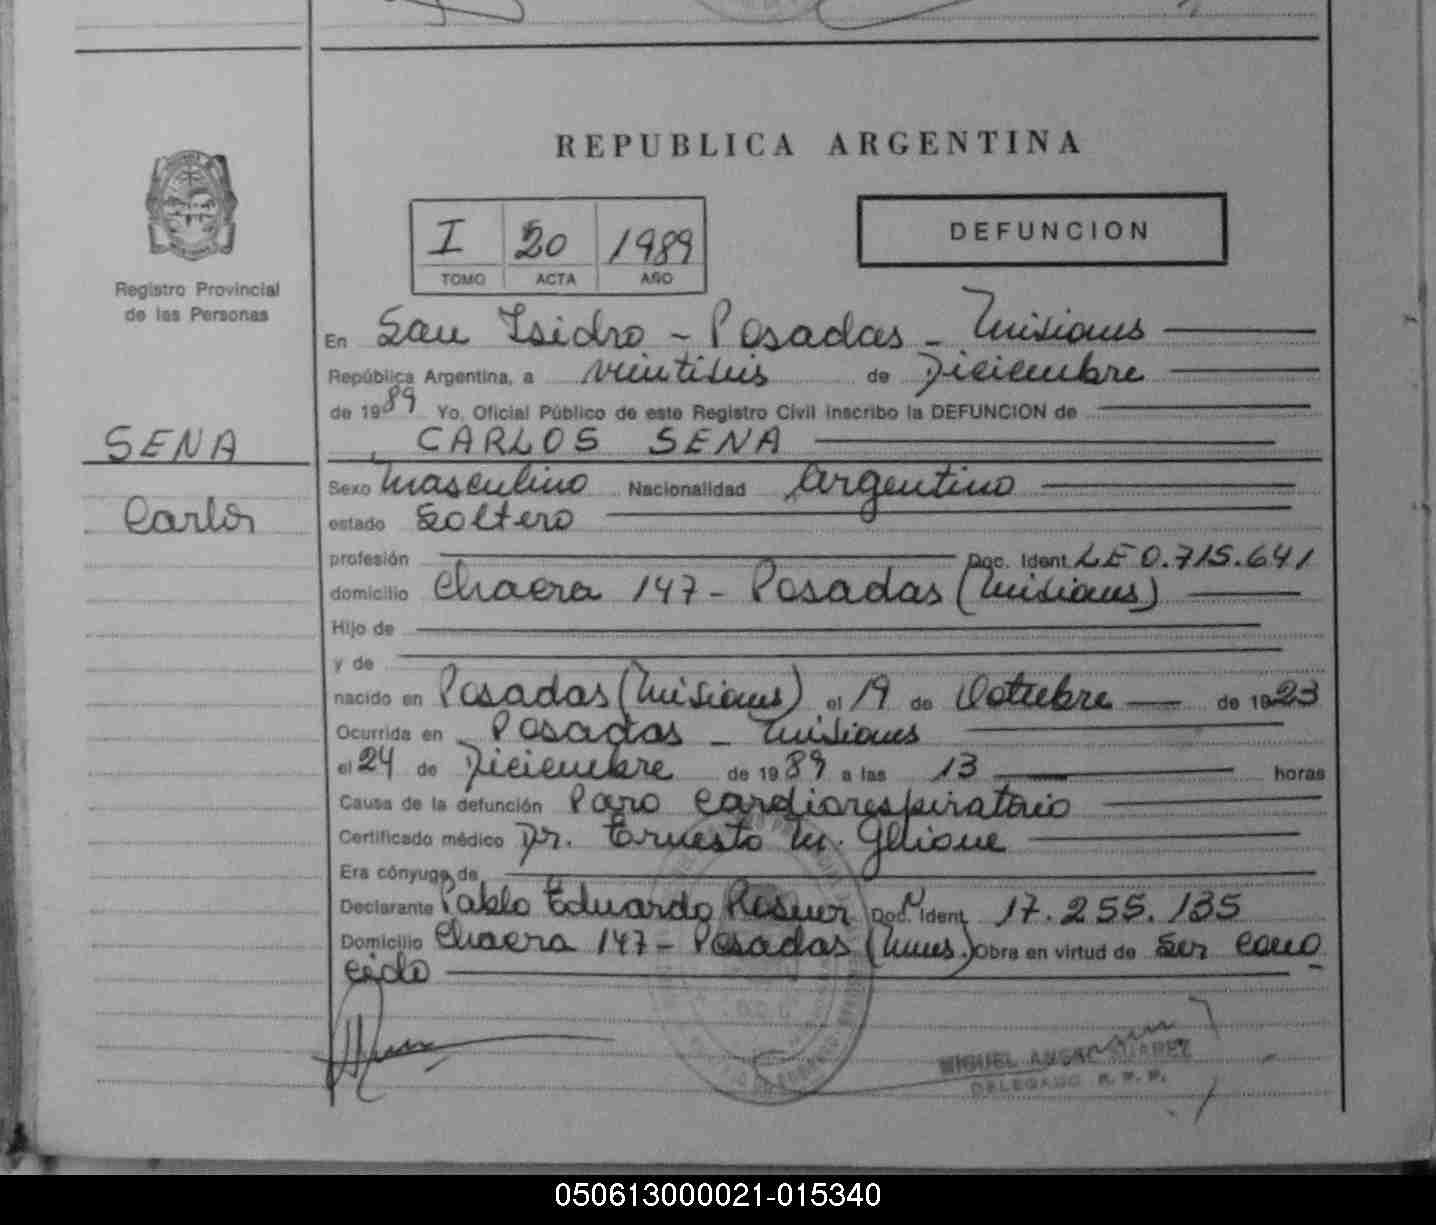 REPUBLICA ARGENTINA
I 20 1989
TOMO ACTA AÑO
DEFUNCION
Registro Provincial
de las Personas
SENA
Carlos
En San Isidro - Posadas - Misiones
República Argentina, a veintiseis de Diciembre
de 1989 Yo, Oficial Público de este Registro Civil inscribo la DEFUNCION de
CARLOS SENA
Sexo masculino Nacionalidad Argentino
estado soltero
profesión Doc. Ident. LE 0.715.641
domicilio Chacra 147 - Posadas (Misiones)
Hijo de
y de
nacido en Posadas (Misiones) el 19 de Octubre de 1923
Ocurrida en Posadas - Misiones
el 24 de Diciembre de 1989 a las 13 horas
Causa de la defunción Paro cardiorespiratorio
Certificado médico Dr. Ernesto M.
Era cónyuge de
Declarante Pablo Eduardo Doc. Ident. 17.255.135
Domicilio Chacra 147 - Posadas (Mnes.) Obra en virtud de ser cono
cido
MIGUEL ANGEL SUAREZ
DELEGADO R. P. P.
050613000021-015340